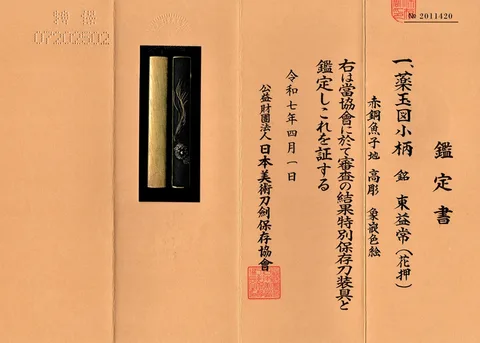 № 2011420
鑑定書
一、薬玉図小柄 銘 東益常(花押)
赤銅魚子地 高彫 象嵌色絵
右は當協會に於て審査の結果特別保存刀装具と
鑑定しこれを証する
令和七年四月一日
公益財團法人 日本美術刀劍保存協會
特保